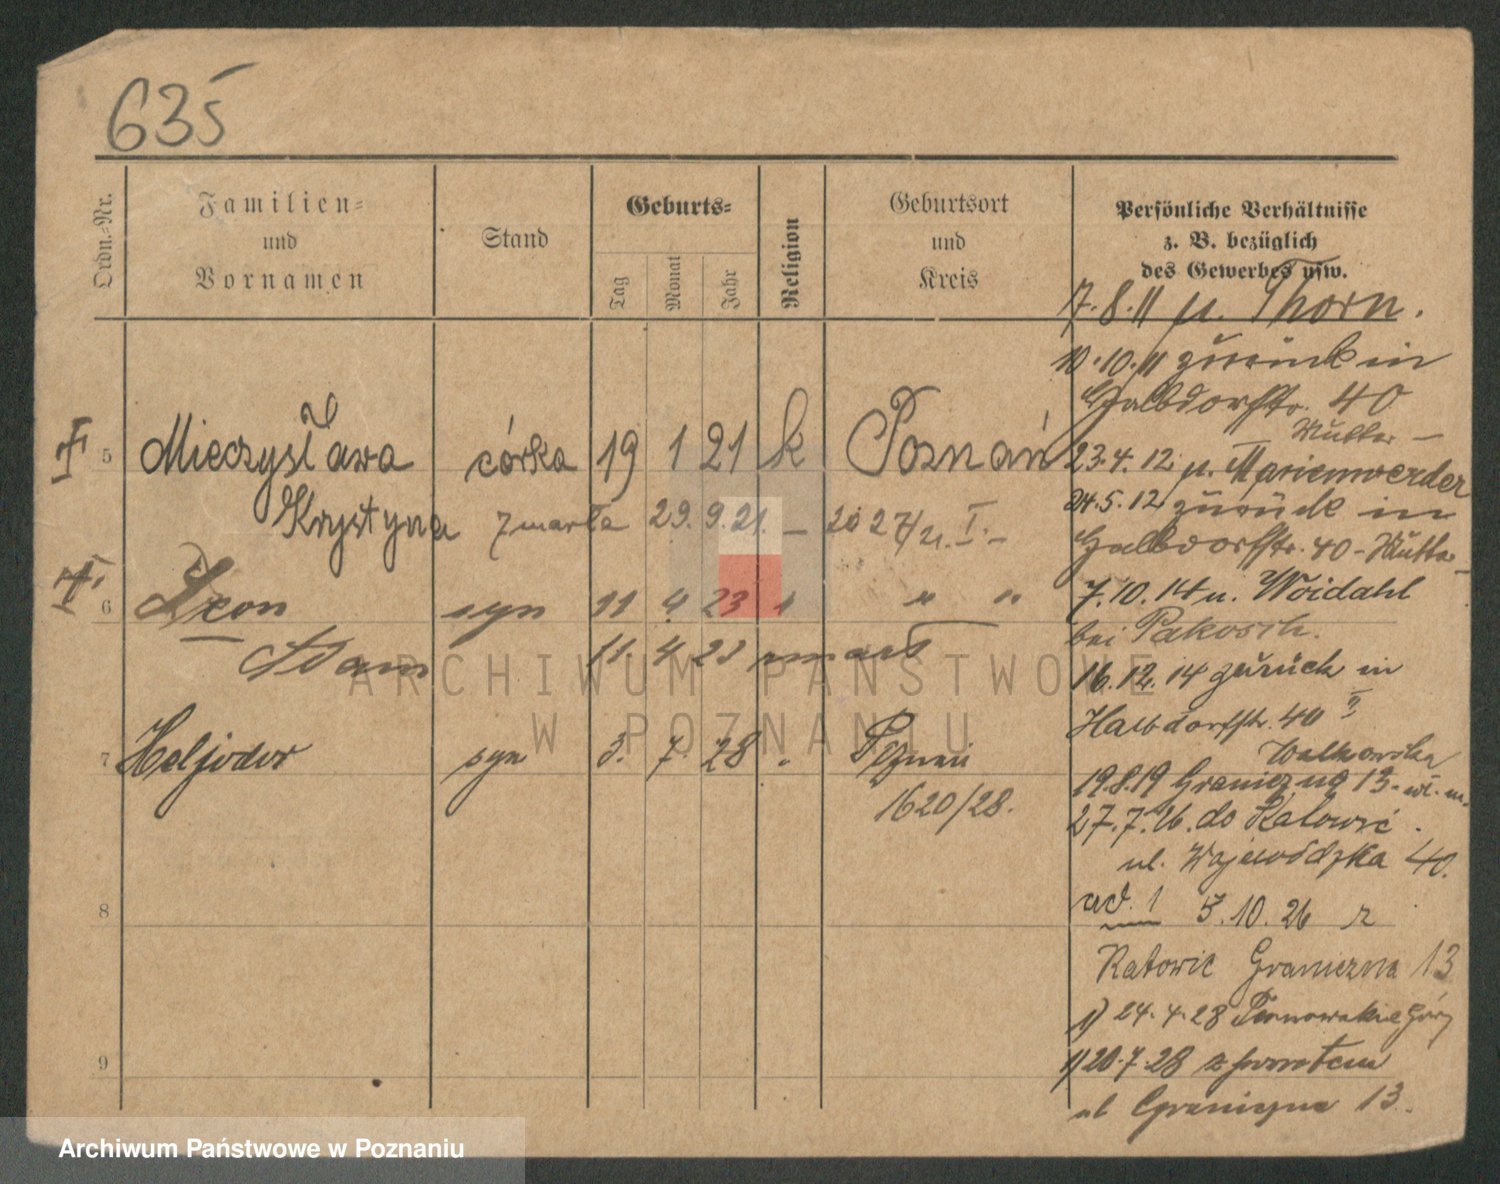 635
Ordn.-Nr.
Familien-
und
Vornamen
Stand
Geburts-
Tag
Monat
Jahr
Religion
Geburtsort
und
Kreis
Persönliche Verhältnisse
z. B. bezüglich
des Gewerbes usw.
5 Mieczysława córka 19 1 21 k Poznań
Krystyna zmarła 29. 9. 21. — 20 27/21. I. —
6 Leon syn 11 4 23 " " "
Adam 11. 4 23 zmarł
7 Heljodor syn 3. 7. 28 " Poznań
1620/28.
8
9
17.8.11 n. Thorn.
10.10.11 zurück in
Halbdorfstr. 40
Mutter —
23.4.12 n. Marienwerder
24.5.12 zurück in
Halbdorfstr. 40 - Mutter
7.10.14 n. Woidahl
bei Pakosch.
16.12.14 zurück in
Halbdorfstr. 40 II
Walkowska
19.8.19 Graniczna 13 -
27.7.26. do Katowic.
ul. Wojewódzka 40.
ad. 1 5.10.26 z
Katowic Graniczna 13
1) 24.4.28 Tarnowskie Góry
1) 20.7.28 z powrotem
ul Graniczna 13.
ARCHIWUM PAŃSTWOWE
W POZNANIU
Archiwum Państwowe w Poznaniu